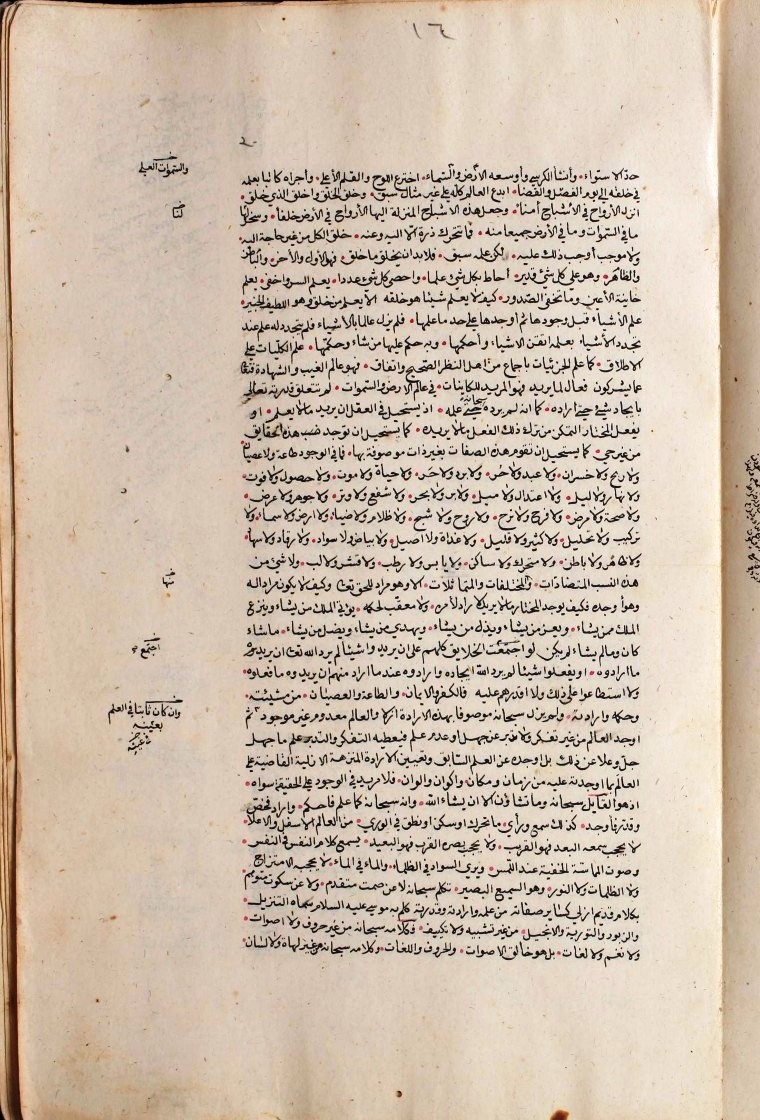 ١٦
حد الاستواء . وأنشأ الكرسي وأوسعه الأرض والسماء . اخترع اللوح والقلم الأعلى . وأجراه كاتبا بعلمه
في خلقه الى يوم الفصل والقضا . ابدع العالم كله على غير مثال سبق . وخلق الخلق واخلق الذي خلق .
انزل الأرواح في الأشباح أمنا . وجعل هذه الاشباح المنزلة اليها الأرواح في الأرض خلفا . وسخر لنا
ما في السموات وما في الأرض جميعا منه . فما تتحرك ذرة الا اليه وعنه . خلق الكل من غير حاجة اليه
ولا موجب أوجب ذلك عليه . لكن علمه سبق . فلا بد ان يخلق ما خلق . فهو الأول والآخر . والباطن
والظاهر . وهو على كل شيء قدير . أحاط بكل شيء علما . واحصى كل شيء عددا . يعلم السر واخفى . يعلم
خاينة الأعين . وما تخفي الصدور . كيف لا يعلم شيئا هو خلقه . ألا يعلم من خلق وهو اللطيف الخبير .
علم الأشياء قبل وجودها ثم أوجدها على حد ما علمها . فلم يزل عالما بالأشياء فلم يتجدد له علم عند
تجدد الأشياء بعلمه اتقن الاشياء وأحكمها . وبه حكم عليها من شاء وحكمها . علم الكليات على
الاطلاق . كما علم الجزئيات باجماع من اهل النظر الصحيح واتفاق . فهو عالم الغيب والشهادة فتعالى
عما يشركون فعال لما يريد فهو المريد للكاينات . في عالم الارض والسموات . لم تتعلق قدرته تعالى
بايجاد شيء حتى اراده . كما انه لم يرده سبحانه حتى علمه . اذ يستحيل في العقل ان يريد ما لا يعلم . او
يفعل المختار المتمكن من ترك ذلك الفعل ما لا يريده . كما يستحيل ان توجد نسب هذه الحقايق
من غير حي . كما يستحيل ان تقوم هذه الصفات بغير ذات موصوفة بها . فما في الوجود طاعة ولا عصيان
ولا ربح ولا خسران . ولا عبد ولا حر . ولا برد ولا حر . ولا حياة ولا موت . ولا حصول ولا فوت
ولا نهار ولا ليل . ولا اعتدال ولا ميل . ولا بر ولا بحر . ولا شفع ولا وتر . ولا جوهر ولا عرض .
ولا صحة ولا مرض . ولا فرح ولا ترح . ولا روح ولا شبح . ولا ظلام ولا ضياء . ولا ارض ولا سماء . ولا
تركيب ولا تحليل . ولا كثير ولا قليل . ولا غداة ولا اصيل . ولا بياض ولا سواد . ولا رقاد ولا سهاد
ولا ظاهر ولا باطن . ولا متحرك ولا ساكن . ولا يابس ولا رطب . ولا قشر ولا لب . ولا شيء من
هذه النسب المتضادات . والمختلفات والمتماثلات . الا وهو مراد للحق تعالى وكيف لا يكون مرادا له
وهو أوجده فكيف يوجد المختار ما لا يريد لا راد لأمره . ولا معقب لحكمه . يؤتي الملك من يشاء وينزع
الملك ممن يشاء . ويعز من يشاء ويذل من يشاء . ويهدي من يشاء ويضل من يشاء . ما شاء
كان وما لم يشأ لم يكن لو اجتمعت الخلايق كلهم على ان يريدوا شيئا لم يرد الله تعالى ان يريدوه
ما ارادوه . او يفعلوا شيئا لم يرد الله ايجاده وارادوه عندما اراد منهم ان يريدوه ما فعلوه
ولا استطاعوا على ذلك ولا اقدرهم عليه فالكفر والايمان . والطاعة والعصيان . من مشيئته
وحكمه وارادته . ولم يزل سبحانه موصوفا بهذه الارادة ازلا والعالم معدوم غير موجود ثم
اوجد العالم من غير تفكر ولا تدبر عن جهل او عدم علم فيعطيه التفكر والتدبر علم ما جهل
جل وعلا عن ذلك بل اوجده عن العلم السابق وتعيين الارادة المنزهة الازلية القاضية على
العالم بما اوجدته عليه من زمان ومكان وأكوان وألوان . فلا مريد في الوجود على الحقيقة سواه
اذ هو القايل سبحانه وما تشاؤن الا ان يشاء الله . وانه سبحانه كما علم فاحكم . واراد فخصص
وقدر فأوجد . كذلك سمع ورأى ما تحرك او سكن او نطق في الورى . من العالم الاسفل والاعلا
لا يحجب سمعه البعد فهو القريب . ولا يحجب بصره القرب فهو البعيد . يسمع كلام النفس في النفس
وصوت الماسة الخفية عند اللمس . ويرى السواد في الظلماء . والماء في الماء . لا يحجبه الامتزاج
ولا الظلمات ولا النور . وهو السميع البصير . تكلم سبحانه لا عن صمت متقدم . ولا عن سكوت متوهم
بكلام قديم ازلي كساير صفاته من علمه وارادته وقدرته كلم به موسى عليه السلام سماه التنزيل .
والزبور والتورية والانجيل . من غير تشبيه ولا تكييف . فكلامه سبحانه من غير حروف ولا اصوات .
ولا نغم ولا لغات . بل هو خالق الاصوات . والحروف واللغات . وكلامه سبحانه من غير لهاة ولا لسان
والسموات العلى
لنا
اجتمع
وان كان ثابتا في العلم